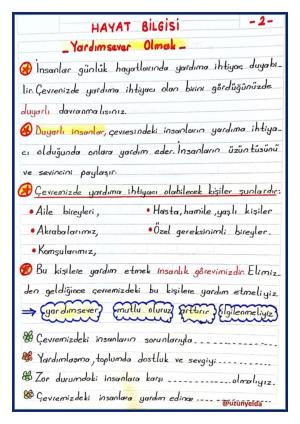 HAYAT BİLGİSİ
- 2 -
- Yardımsever Olmak -
İnsanlar günlük hayatlarında yardıma ihtiyaç duyabi-
lir. Çevremizde yardıma ihtiyacı olan birini gördüğünüzde
duyarlı davranmalısınız.
Duyarlı insanlar, çevresindeki insanların yardıma ihtiya-
cı olduğunda onlara yardım eder. İnsanların üzüntüsünü
ve sevincini paylaşır.
Çevremizde yardıma ihtiyacı olabilecek kişiler şunlardır:
• Aile bireyleri,
• Hasta, hamile, yaşlı kişiler
• Akrabalarımız,
• Özel gereksinimli bireyler.
• Komşularımız,
Bu kişilere yardım etmek insanlık görevimizdir. Elimiz-
den geldiğince çevremizdeki bu kişilere yardım etmeliyiz.
yardımsever mutlu oluruz arttırır ilgilenmeliyiz
Çevremizdeki insanların sorunlarıyla ..........
Yardımlaşma, toplumda dostluk ve sevgiyi ..........
Zor durumdaki insanlara karşı .......... olmalıyız.
Çevremizdeki insanlara yardım edince ..........
@uzunyelda